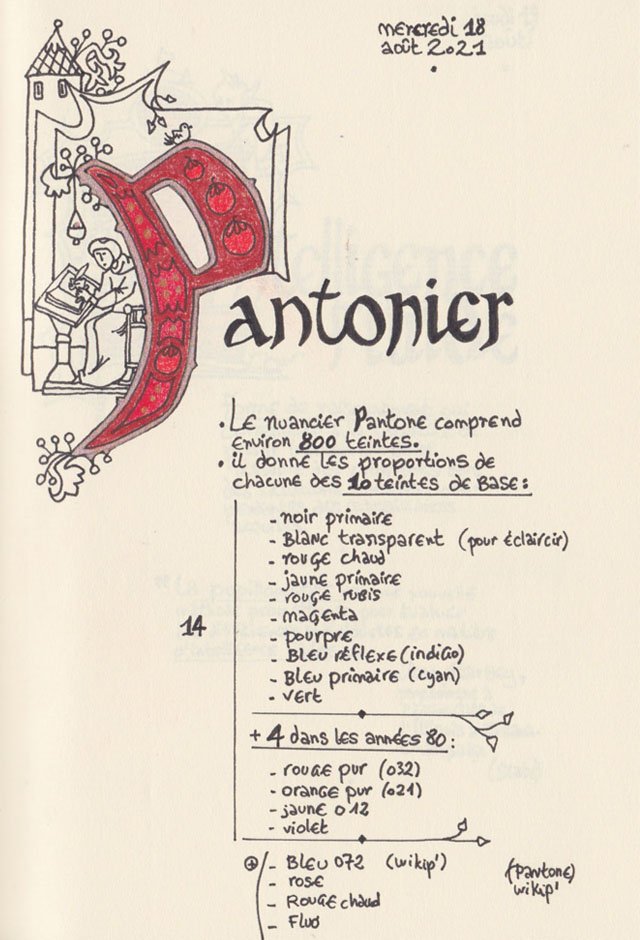 mercredi 18
août 2021
Pantonier
• Le nuancier Pantone comprend
environ 800 teintes.
• il donne les proportions de
chacune des 10 teintes de base :
- noir primaire
- Blanc transparent (pour éclaircir)
- rouge chaud
- jaune primaire
- rouge rubis
- magenta
14
- pourpre
- Bleu réflexe (indigo)
- Bleu primaire (cyan)
- vert
+ 4 dans les années 80 :
- rouge pur (032)
- orange pur (021)
- jaune 012
- violet
⊕ - Bleu 072 (wikip')
- rose
- Rouge chaud
- Fluo
(Pantone)
wikip'